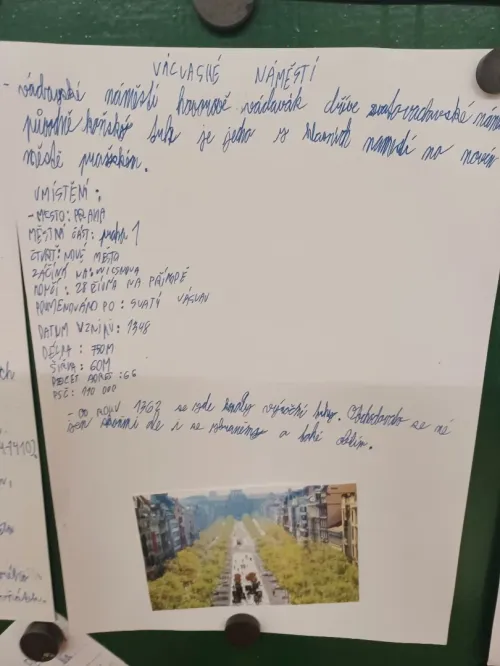 VÁCLASKÉ NÁMĚSTÍ
- náměstí hovorově václavák dříve
původně koňský trh je jedno z hlavních náměstí na novém
městě pražském.
UMÍSTĚNÍ:
- MĚSTO: PRAHA
MĚSTNÍ ČÁST: praha 1
ČTVRŤ: NOVÉ MĚSTO
ZAČÍNÁ NA:
KONČÍ: 28 ŘÍJNA NA PŘÍKOPĚ
POJMENOVÁNO PO: SVATÝ VÁCLAV
DATUM VZNIKU: 1348
DÉLKA: 750M
ŠÍŘKA: 60M
POČET ADRES: 66
PSČ: 110 000
- OD ROKU 1362 se zde konaly výroční trhy. Obchodovalo se ne
jen ale i se a také obilím.